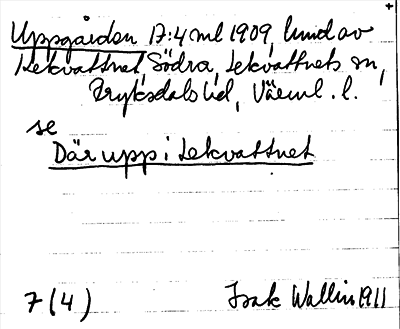 Uppgården 17:4 ml 1909, hmd av
Lekvattnet, Södra, Lekvattnets sn,
Fryksdals hd, Värml. l.
se
Där upp i Lekvattnet
7 (4) Isak Wallin 1911